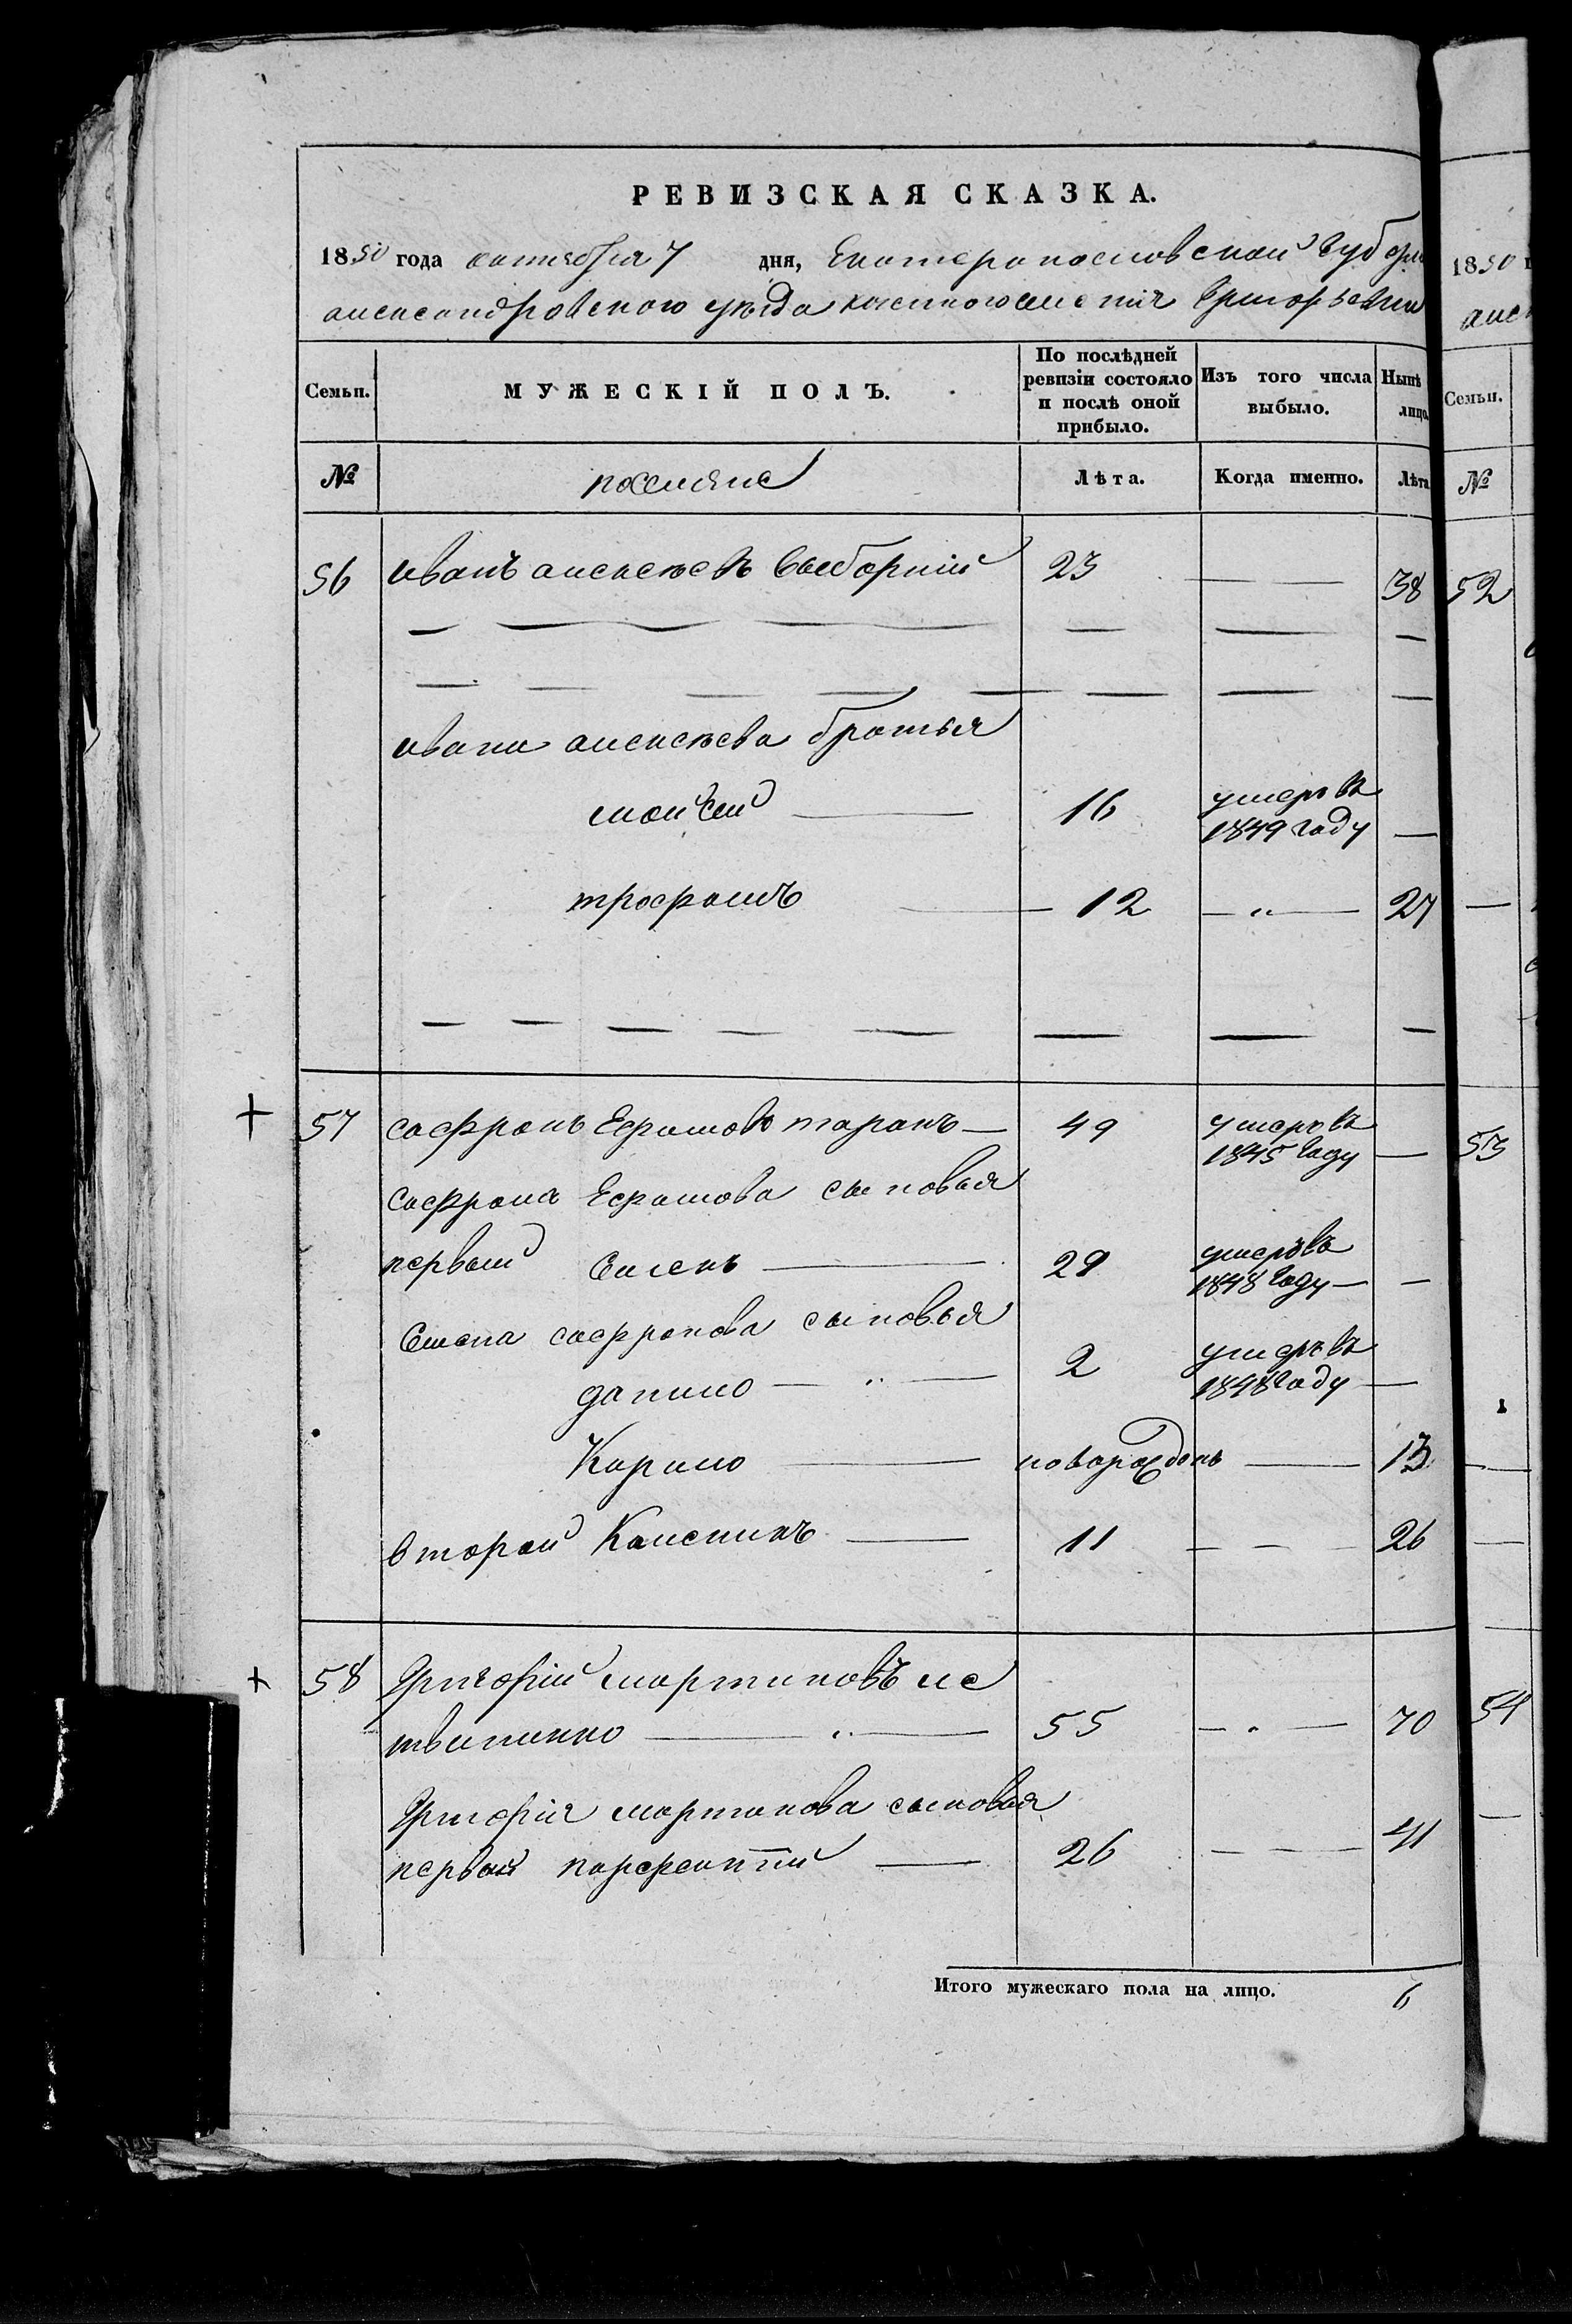 РЕВИЗСКАЯ СКАЗКА.
1850 года октября 7 дня, Екатеринославской Губерн
александровского уезда казенного селения Григорьевки
Семьи.
МУЖЕСКІЙ ПОЛЪ.
По послѣдней ревизіи состояло и послѣ оной прибыло.
Изъ того числа выбыло.
Нынѣ лицо
№
поселяне
Лѣта.
Когда именно.
Лѣта
56 иванъ алексѣевъ выборній 23 — — 38
ивана алексѣева братья
моисей — 16 умеръ въ
1849 году —
трофимъ — 12 — " — 27
57 сафронъ Ефимовъ таранъ — 49 умеръ въ
1845 году —
сафрона Ефимова сыновья
первый Семенъ — 29 умеръ въ
1848 году — —
Семена сафронова сыновья
данило — " — 2 умеръ въ
1848 году —
Кирило — новорожденъ — 13
второй Калиникъ — 11 — — — 26
58 Григорій мартиновъ ле
твиненко — " — 55 — " — 70
Григорія мартинова сыновья
первый парфентій — 26 — — — 41
Итого мужескаго пола на лицо. 6
1850 г
алек
Семьи.
№
52
53
54